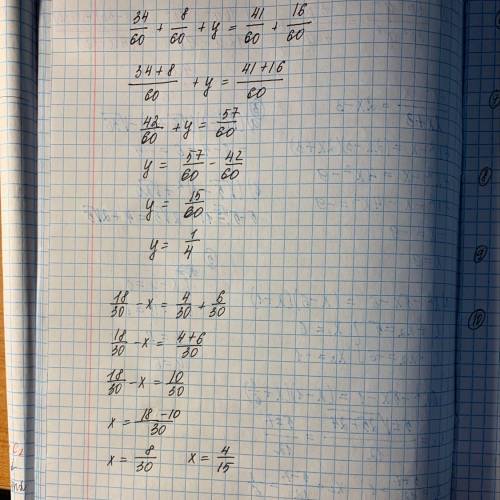 34/60 + 8/60 + y = 41/60 + 16/60
(34+8)/60 + y = (41+16)/60
42/60 + y = 57/60
y = 57/60 - 42/60
y = 15/60
y = 1/4
18/30 - x = 4/30 + 6/30
18/30 - x = (4+6)/30
18/30 - x = 10/30
x = (18-10)/30
x = 8/30 x = 4/15